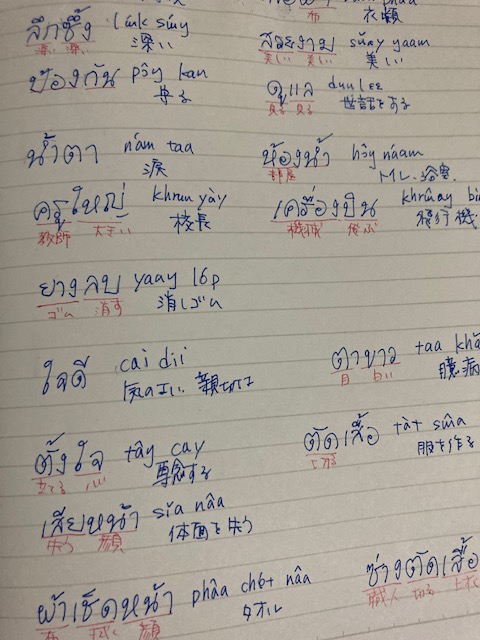 布 衣類
ลึกซึ้ง lɯ́k sɯ́ŋ
深い 深い 深い
สวยงาม sǔay ŋaam
美しい 美しい 美しい
ป้องกัน pɔ̂ŋ kan
守る
ดูแล duu lɛɛ
見る 見る 世話をする
น้ำตา nám taa
涙
ห้องน้ำ hɔ̂ŋ náam
部屋 トイレ、浴室
ครูใหญ่ khruu yày
教師 大きい 校長
เครื่องบิน khrɯ̂aŋ
機械 飛ぶ 飛行機
ยางลบ yaaŋ lóp
ゴム 消す 消しゴム
ใจดี cai dii
気のよい 親切な
ตาขาว taa
目 白い 臆病
ตั้งใจ tâŋ cay
立てる 心 専念する
ตัดเสื้อ tàt sɯ̂a
切る 服を作る
เสียหน้า sǐa nâa
失う 顔 体面を失う
ผ้าเช็ดหน้า phâa chét nâa
布 拭く 顔 タオル
ช่างตัดเสื้อ
職人 切る